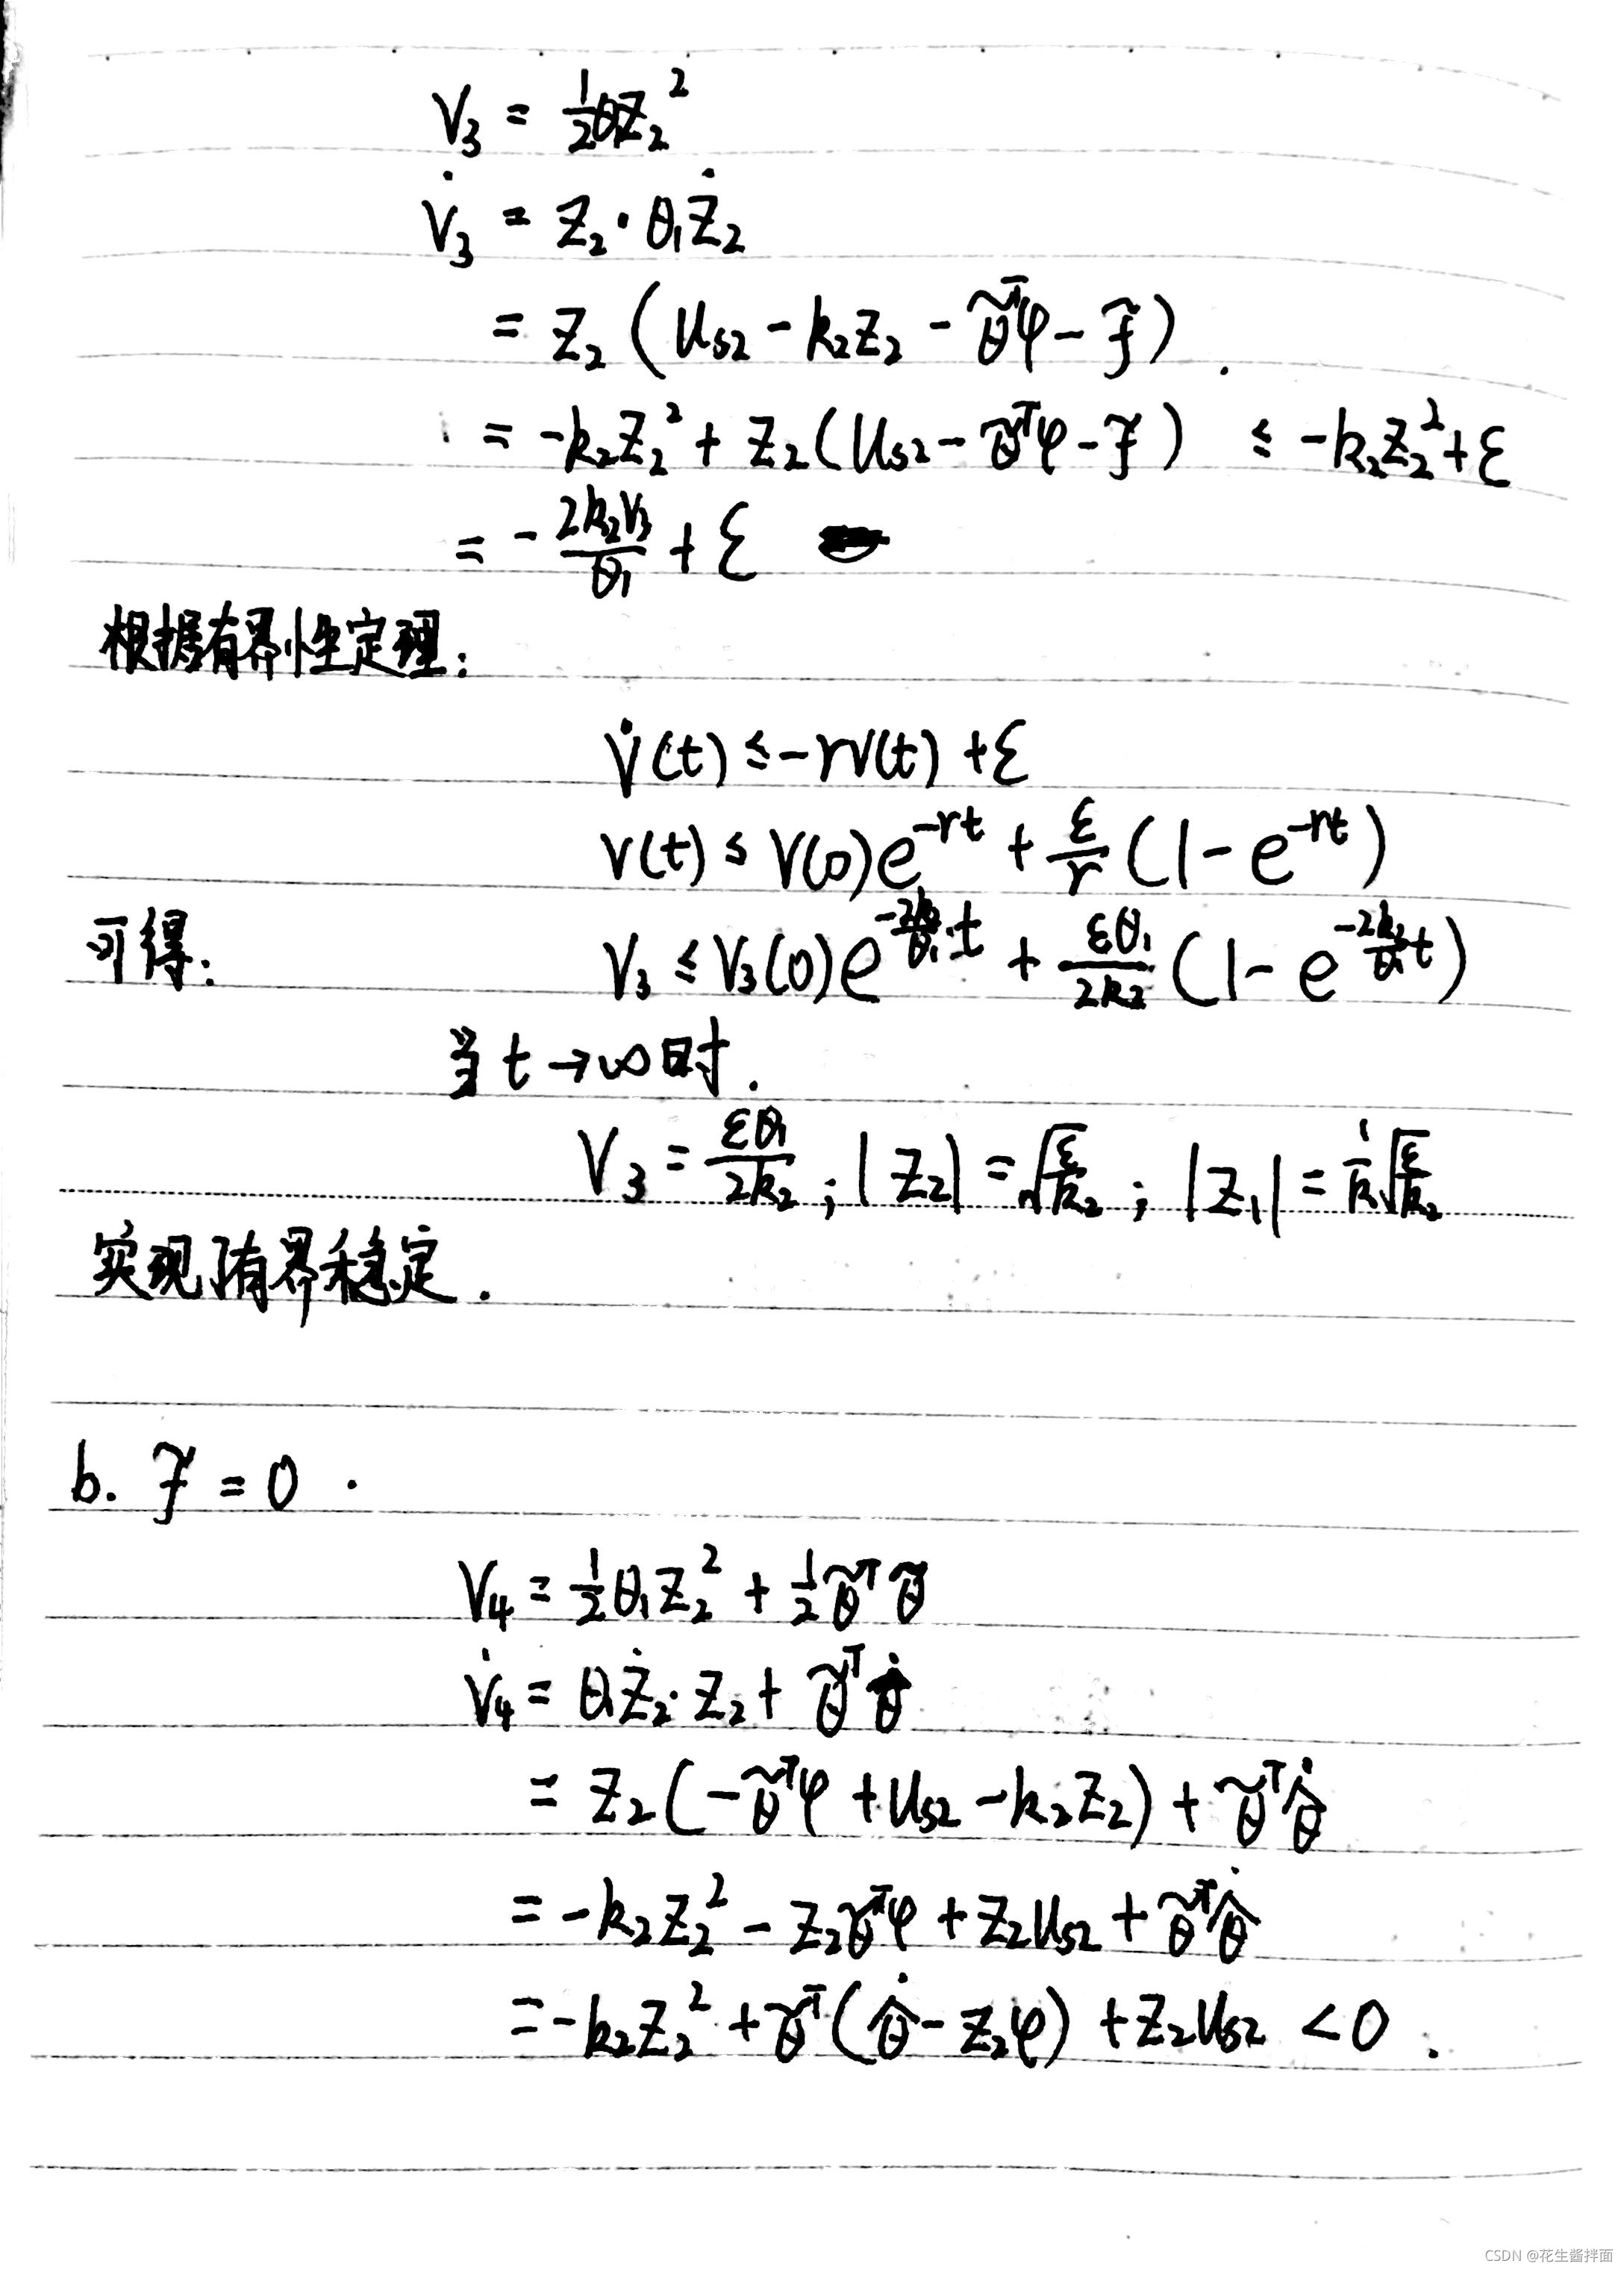 V₃ = ½θ₁z₂²
V̇₃ = z₂·θ₁ż₂
= z₂(u_{s2} - k₂z₂ - θ̃ᵀφ - f̃).
= -k₂z₂² + z₂(u_{s2} - θ̃ᵀφ - f̃) ≤ -k₂z₂² + ε
= -\frac{2k₂V₃}{θ₁} + ε
根据有界性定理:
V̇(t) ≤ -rV(t) + ε
V(t) ≤ V(0)e^{-rt} + \frac{ε}{r}(1 - e^{-rt})
可得: V₃ ≤ V₃(0)e^{-\frac{2k₂}{θ₁}·t} + \frac{εθ₁}{2k₂}(1 - e^{-\frac{2k₂}{θ₁}t})
当 t→∞时.
V₃ = \frac{εθ₁}{2k₂}; |z₂| = \sqrt{\frac{ε}{k₂}}; |z₁| = \frac{1}{k₁}\sqrt{\frac{ε}{k₂}}
实现了有界稳定.
b. f̃ = 0.
V₄ = ½θ₁z₂² + ½θ̃ᵀθ̃
V̇₄ = θ₁ż₂·z₂ + θ̃ᵀ\dot{θ̂}
= z₂(-θ̃ᵀφ + u_{s2} - k₂z₂) + θ̃ᵀ\dot{θ̂}
= -k₂z₂² - z₂θ̃ᵀφ + z₂u_{s2} + θ̃ᵀ\dot{θ̂}
= -k₂z₂² + θ̃ᵀ(\dot{θ̂} - z₂φ) + z₂u_{s2} < 0.
CSDN @花生酱拌面